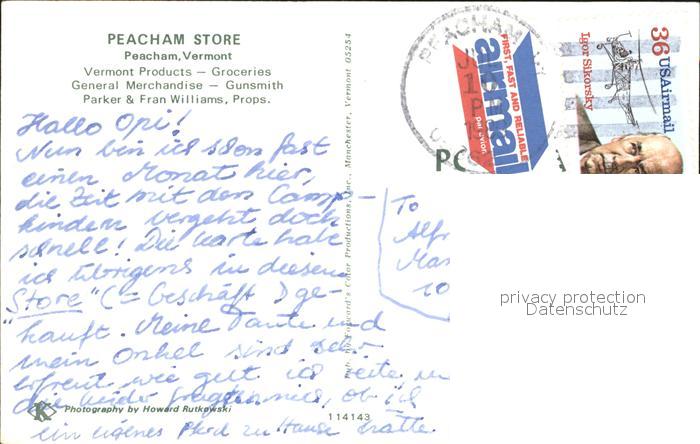 PEACHAM STORE
Peacham, Vermont
Vermont Products — Groceries
General Merchandise — Gunsmith
Parker & Fran Williams, Props.
Hallo Opi!
Nun bin ich schon fast
einen Monat hier,
die Zeit mit den Camp-
kindern vergeht doch
schnell! Die Karte habe
ich übrigens in diesem
"Store" (= Geschäft) ge-
kauft. Meine Tante und
mein Onkel sind sehr
erfreut wie gut ich reite und
die beiden fragten mich, ob ich
ein eigenes Pferd zu Hause hätte.
Photography by Howard Rutkowski
114143
Color Productions, Inc., Manchester, Vermont 05254
PEACHAM
FIRST, FAST AND RELIABLE
airmail
par avion
36 USAirmail
Igor Sikorsky
To
privacy protection
Datenschutz